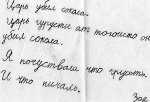 Царь убил сокола.
Царь грусти ат того что он
убил сокола.
Я почуствавал что грусть.
И что пичаль.
Зоя